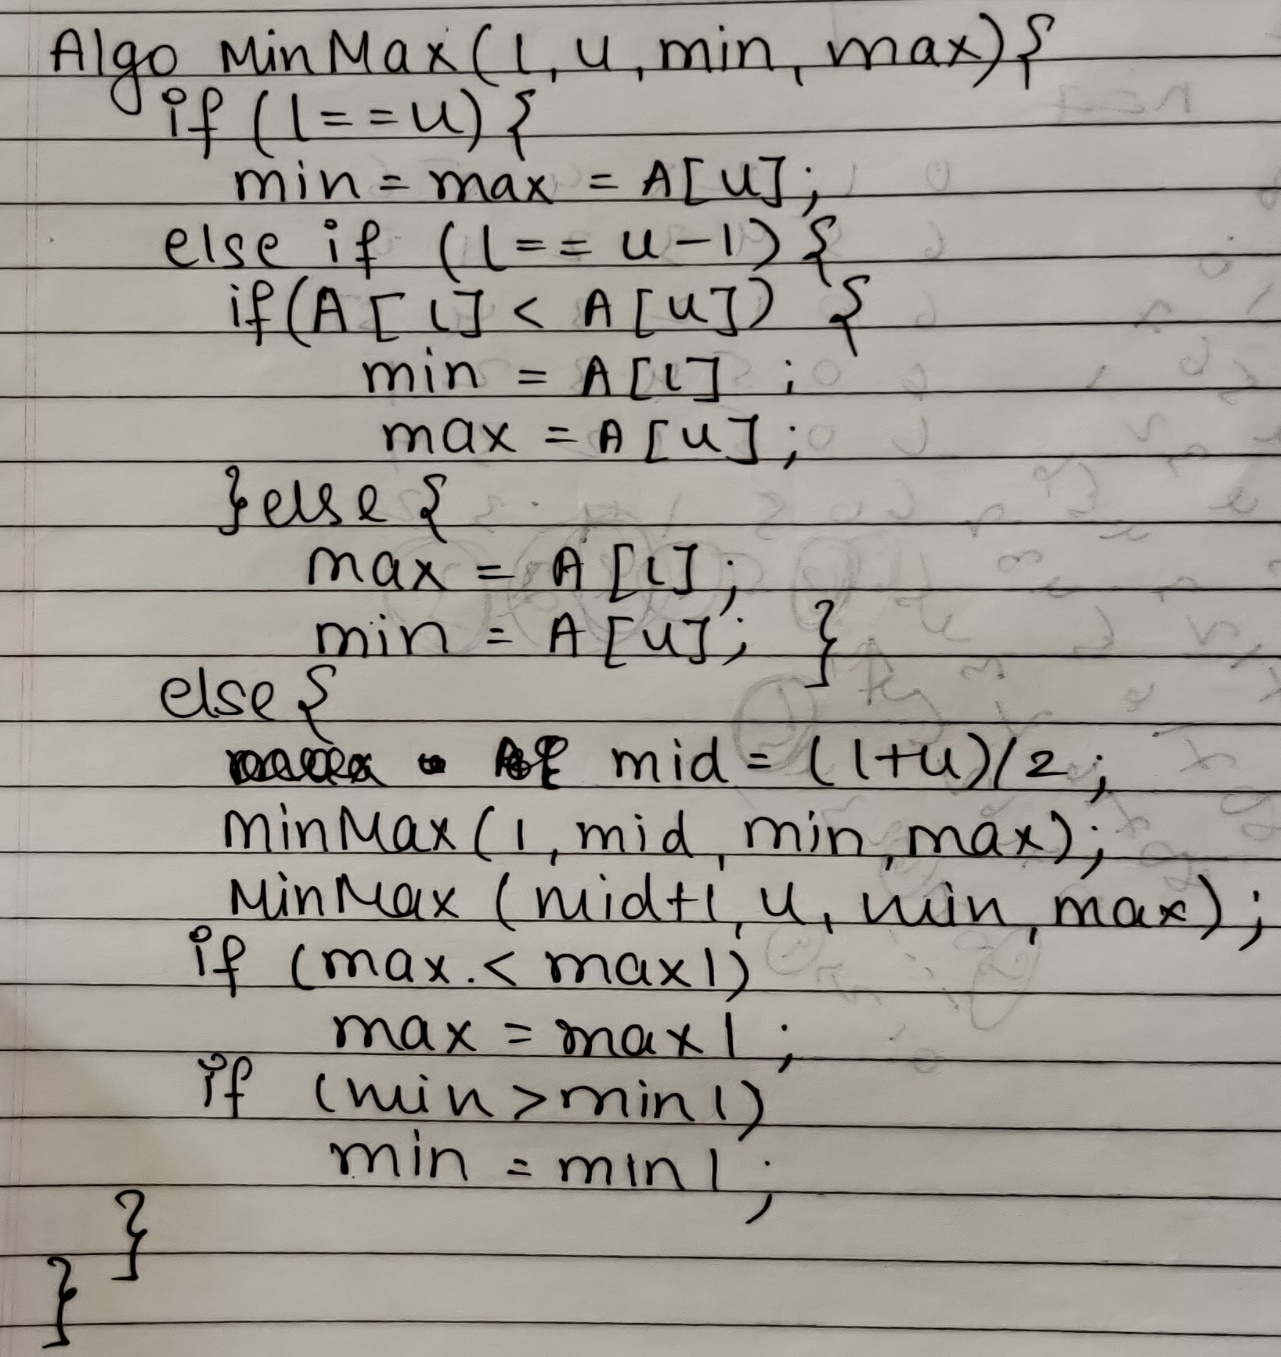 Algo MinMax(l, u, min, max){
if (l==u) {
min = max = A[u];
else if (l == u-1) {
if(A[l] < A[u]) {
min = A[l] ;
max = A[u];
}else {
max = A[l];
min = A[u]; }
else {
mid = (l+u)/2;
MinMax(l, mid, min, max);
MinMax (mid+1, u, min, max);
if (max.< max1)
max = max1 ;
if (min>min1)
min = min1 ;
}
}